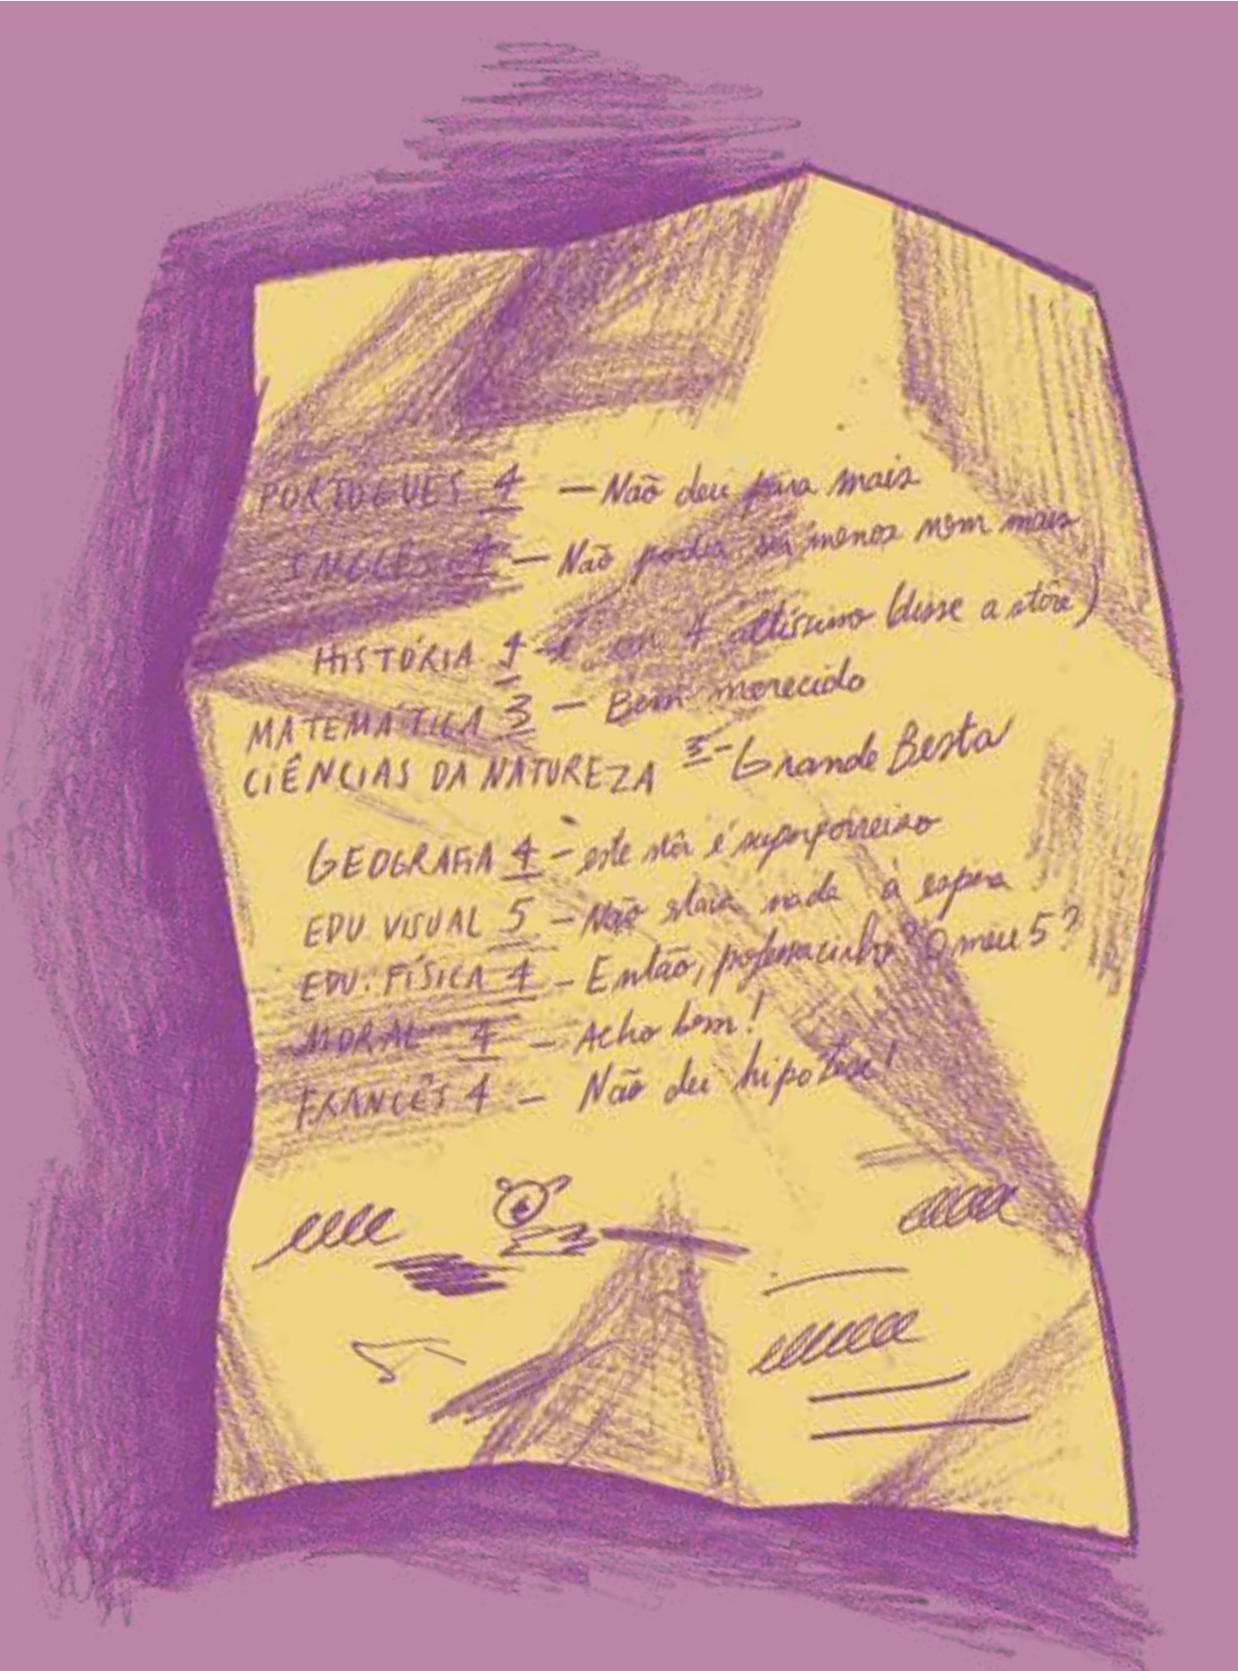 PORTUGUÊS 4 — Não deu para mais
INGLÊS 4 — Não podia ser menos nem mais
HISTÓRIA 4 - é um 4 altíssimo (disse a stôra)
MATEMÁTICA 3 — Bem merecido
CIÊNCIAS DA NATUREZA 3 - Grande Besta
GEOGRAFIA 4 - este stôr é superporreiro
EDU VISUAL 5 - Não stava nada à espera
EDU. FÍSICA 4 - Então, professorzinho? O meu 5?
MORAL 4 - Acho bem!
FRANCÊS 4 - Não deu hipótese!